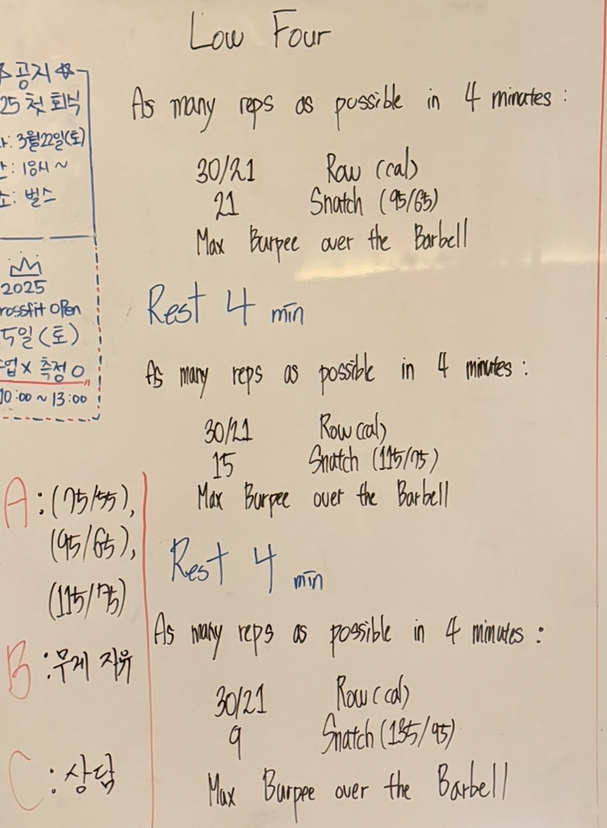 Low Four
As many reps as possible in 4 minutes :
30/21 Row (cal)
21 Snatch (95/65)
Max Burpee over the Barbell
Rest 4 min
As many reps as possible in 4 minutes :
30/21 Row (cal)
15 Snatch (115/75)
Max Burpee over the Barbell
Rest 4 min
As many reps as possible in 4 minutes :
30/21 Row (cal)
9 Snatch (135/95)
Max Burpee over the Barbell
공지
25 첫 회식
: 3월22일(토)
: 18시 ~
: 벌스
2025
rossfit open
5일 (토)
업 X 측정 O
10:00 ~ 13:00
A : (75/55),
(95/65),
(115/75)
B : 무게 자유
C : 상담